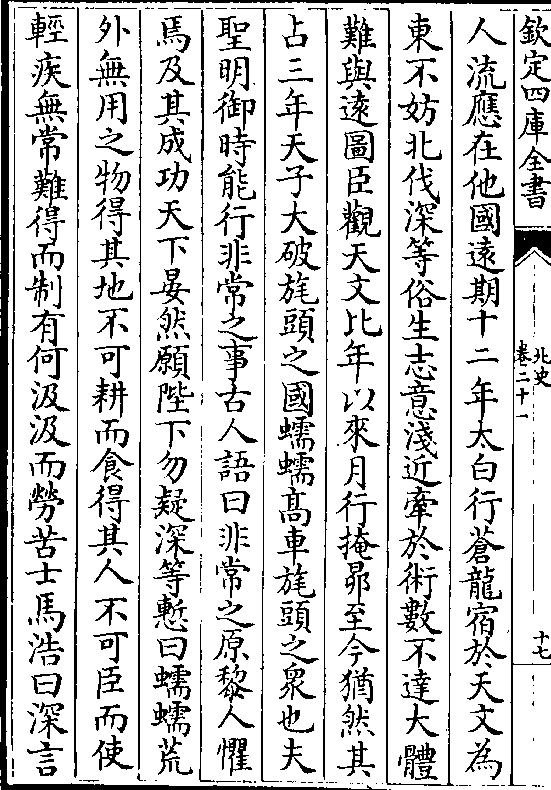 欽定四庫全書
北史
卷二十一
十七
人流應在他國遠期十二年太白行蒼龍宿於天文為
東不妨北伐深等俗生志意淺近牽於術數不達大體
難與遠圖臣觀天文比年以來月行掩昴至今猶然其
占三年天子大破旄頭之國蠕蠕髙車旄頭之衆也夫
聖明御時能行非常之事古人語曰非常之原黎人懼
焉及其成功天下晏然願陛下勿疑深等慙曰蠕蠕荒
外無用之物得其地不可耕而食得其人不可臣而使
輕疾無常難得而制有何汲汲而勞苦士馬浩曰深言